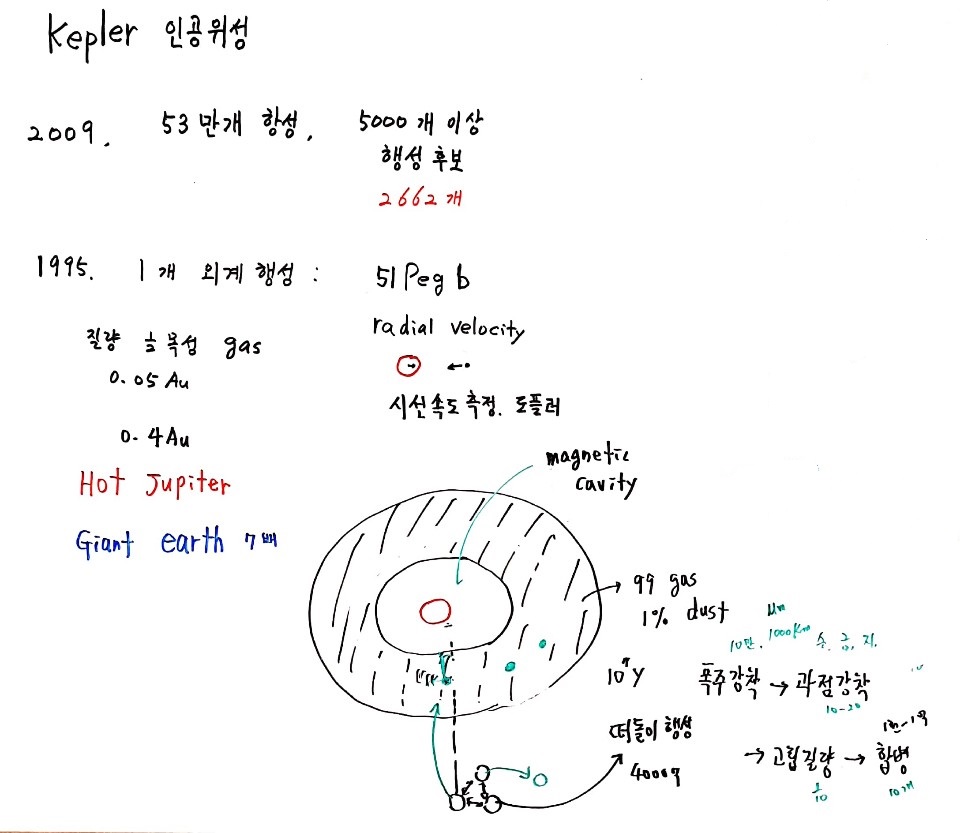 Kepler 인공위성
2009. 53만개 항성, 5000개 이상
행성 후보
2662개
1995. 1개 외계행성 : 51 Peg b
radial velocity
질량 ½ 목성 gas
0.05 Au
시선속도 측정. 도플러
0.4 Au
Hot Jupiter
Giant earth 7배
magnetic
cavity
99 gas
1% dust
μm
10만. 1000Km 수.금.지.
10⁷Y
폭주강착 → 과점강착
10-20
떠돌이 행성
4000억
1천-1억
→ 고립질량 → 합병
1/10
10개